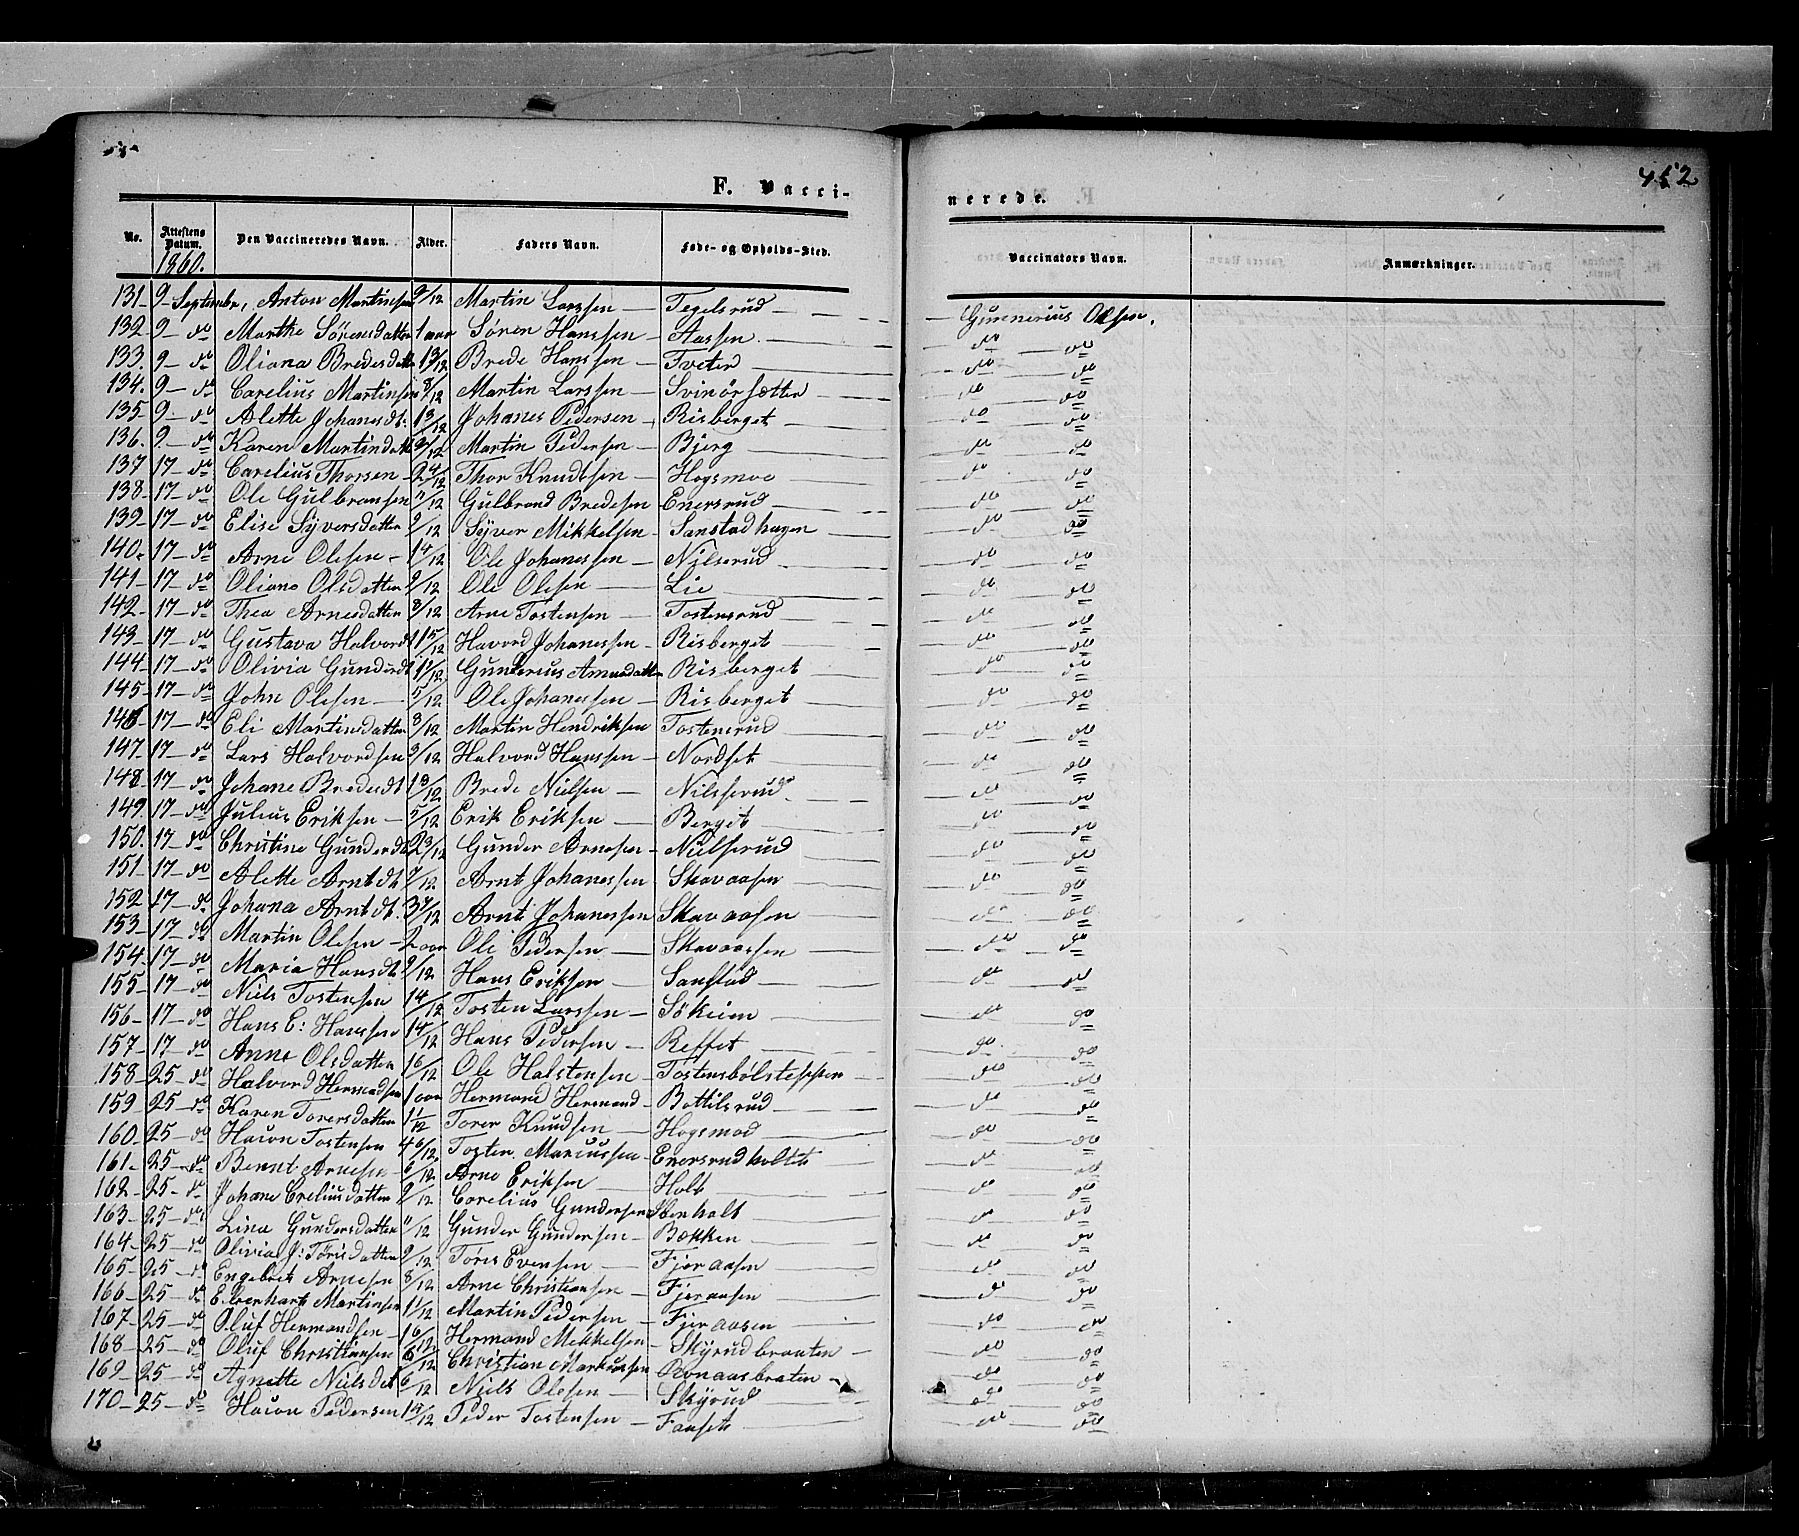 452
F. Vacci-
nerede.
No. Attestens Datum. Den Vaccineredes Navn. Alder. Faders Navn. Føde- og Opholds-Sted. Vaccinators Navn. Anmærkninger.
1860.
131 - 9 - Septembr, Anton Martinsen 9/12 Martin Larssen - Tegelsrud - Gunnerius Olsen.
132 - 9 - do Marthe Sørensdatter 1 aar Søren Hanssen - Aassen. - do do
133. 9 - do Oliana Bredesdatter 13/12 Brede Hanssen - Tveter - do do
134. 9 - do Carelius Martinsen 8/12 Martin Larssen - Svinörsætter - do do
135 - 9 - do Alette Johanesdt: 13/12 Johanes Pedersen - Risberget - do do
136. 9 - do Karen Martindatt 9/12 Martin Pedersen - Bjerg - do do
137 17 - do Carelius Thorsen - 2 4/12 Thor Knudtsen - Hogsmoe - do do
138 - 17 - do Ole Gulbransen 11/12 Gulbrand Bredesen - Enersrud - do do
139 - 17 - do Elise Syversdatter 9/12 Syver Mikkelsen - Sanstadhagen - do do
140 - 17 - do Arne Olesen - 14/12 Ole Johanessen - Nilserud - do do
141 - 17 - do Oliana Olsdatter 9/12 Ole Olesen - Lie - do do
142 - 17 - do Thea Arnesdatter 8/12 Arne Tostensen - Tostensrud - do do
143 - 17 - do Gustava Halvordt 1 15/12 Havord Johanessen - Risberget - do do
144 - 17 - do Olivia Gunderdt 1 11/12 Gunderius Amundatter Risberget - do do
145 - 17 - do Johne Olesen - 5/12 Ole Johanessen - Risberget - do do
146 - 17 - do Eli Martinsdatter 3/12 Martin Hendriksen Tostensrud - do do
147 - 17 - do Lars Halvordsen 9/12 Halvord Hanssen - Nordset - do do
148 - 17 - do Johane Brededt 13/12 Brede Nielsen - Nilsserud - do do
149. 17 - do Julius Eriksen - 5/12 Erik Eriksen - Berget - do do
150. 17 - do Christine Gunderdt 2 3/12 Gunder Arnesen - Nielserud - do do
151. 17 - do Alette Arntdt. 7/12 Arnt Johanessen - Skavaasen - do do
152 - 17 - do Johana Arntdt. 3 7/12 Arnt Johanessen Skavaasen - do do
153 - 17 - do Martin Olesen - 2 aar Ole Pedersen - Skavaassen - do do
154 - 17 - do Maria Hansdt 9/12 Hans Eriksen - Sanstad - do do
155 - 17 - do Niels Tostensen 14/12 Tosten Larssen - Sökeim - do do
156 - 17 - do Hans E: Hanssen 14/12 Hans Pedersen - Reffet - do do
157 - 17 - do Anne Olsdatter 16/12 Ole Halstensen - do do
158 - 25 - do Halvord Hermodsen 1 aar Hermand Hermand - Bottilsrud - do do
159 25 - do Karen Torersdatter 1/12 Torer Knudsen - Hogsmod - do do
160 - 25 - do Hacon Tostensen 4 6/12 Tosten. Marcussen - Enersrudholtet - do do
161 - 25 - do Bennt Arnesen - 6/12 Arne Eriksen Holt - do do
162 - 25 - do Johane Creliusdatter 9/12 Corelius Gundersen Stenholt - do do
163 - 25 - do Lina Gundersdatter 11/12 Gunder Gundersen - Bækken - do do
164 - 25 - do Olivia J: Törisdatter 9/12 Töris Evensen - Fjeraasen - do do
165 - 25 - do Engebret Arnesen 8/12 Arne Christiansen - Fjeraasen - do do
166 - 25 - do Martinsen 1 1/12 Martin Pedersen - Fjeraasen - do do
167 - 25 - do Oluf Hermandsen - 16/12 Hermand Mekkelsen - Skyrudbraaten - do do
168 - 25 - do Oluf Christiansen 6/12 Christian Markussen Ronaasbraten - do do
169 - 25 - do Agnette Nielsdt 6/12 Niels Olesen - Skyrud - do do
170 - 25 - do Hacon Pedersen 14/12 Peder Tostensen - Fanset - do do